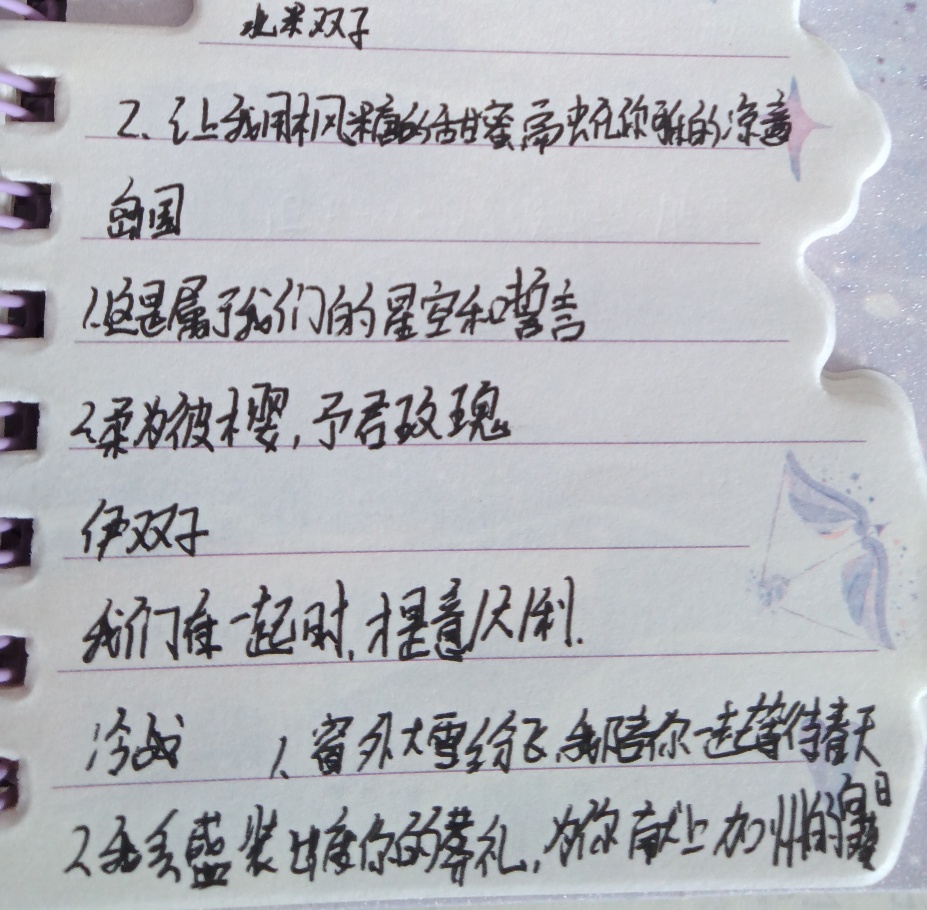 北米双子
2、让我用枫糖的甜蜜融你的凉意
岛国
1.这是属于我们的星空和誓言
2.柔为彼樱,予君玫瑰
伊双子
我们在一起时,才是意大利.
冷战 1、窗外大雪纷飞,我陪你一起等待春天
2.我会盛装出席你的葬礼,为你献上加州的